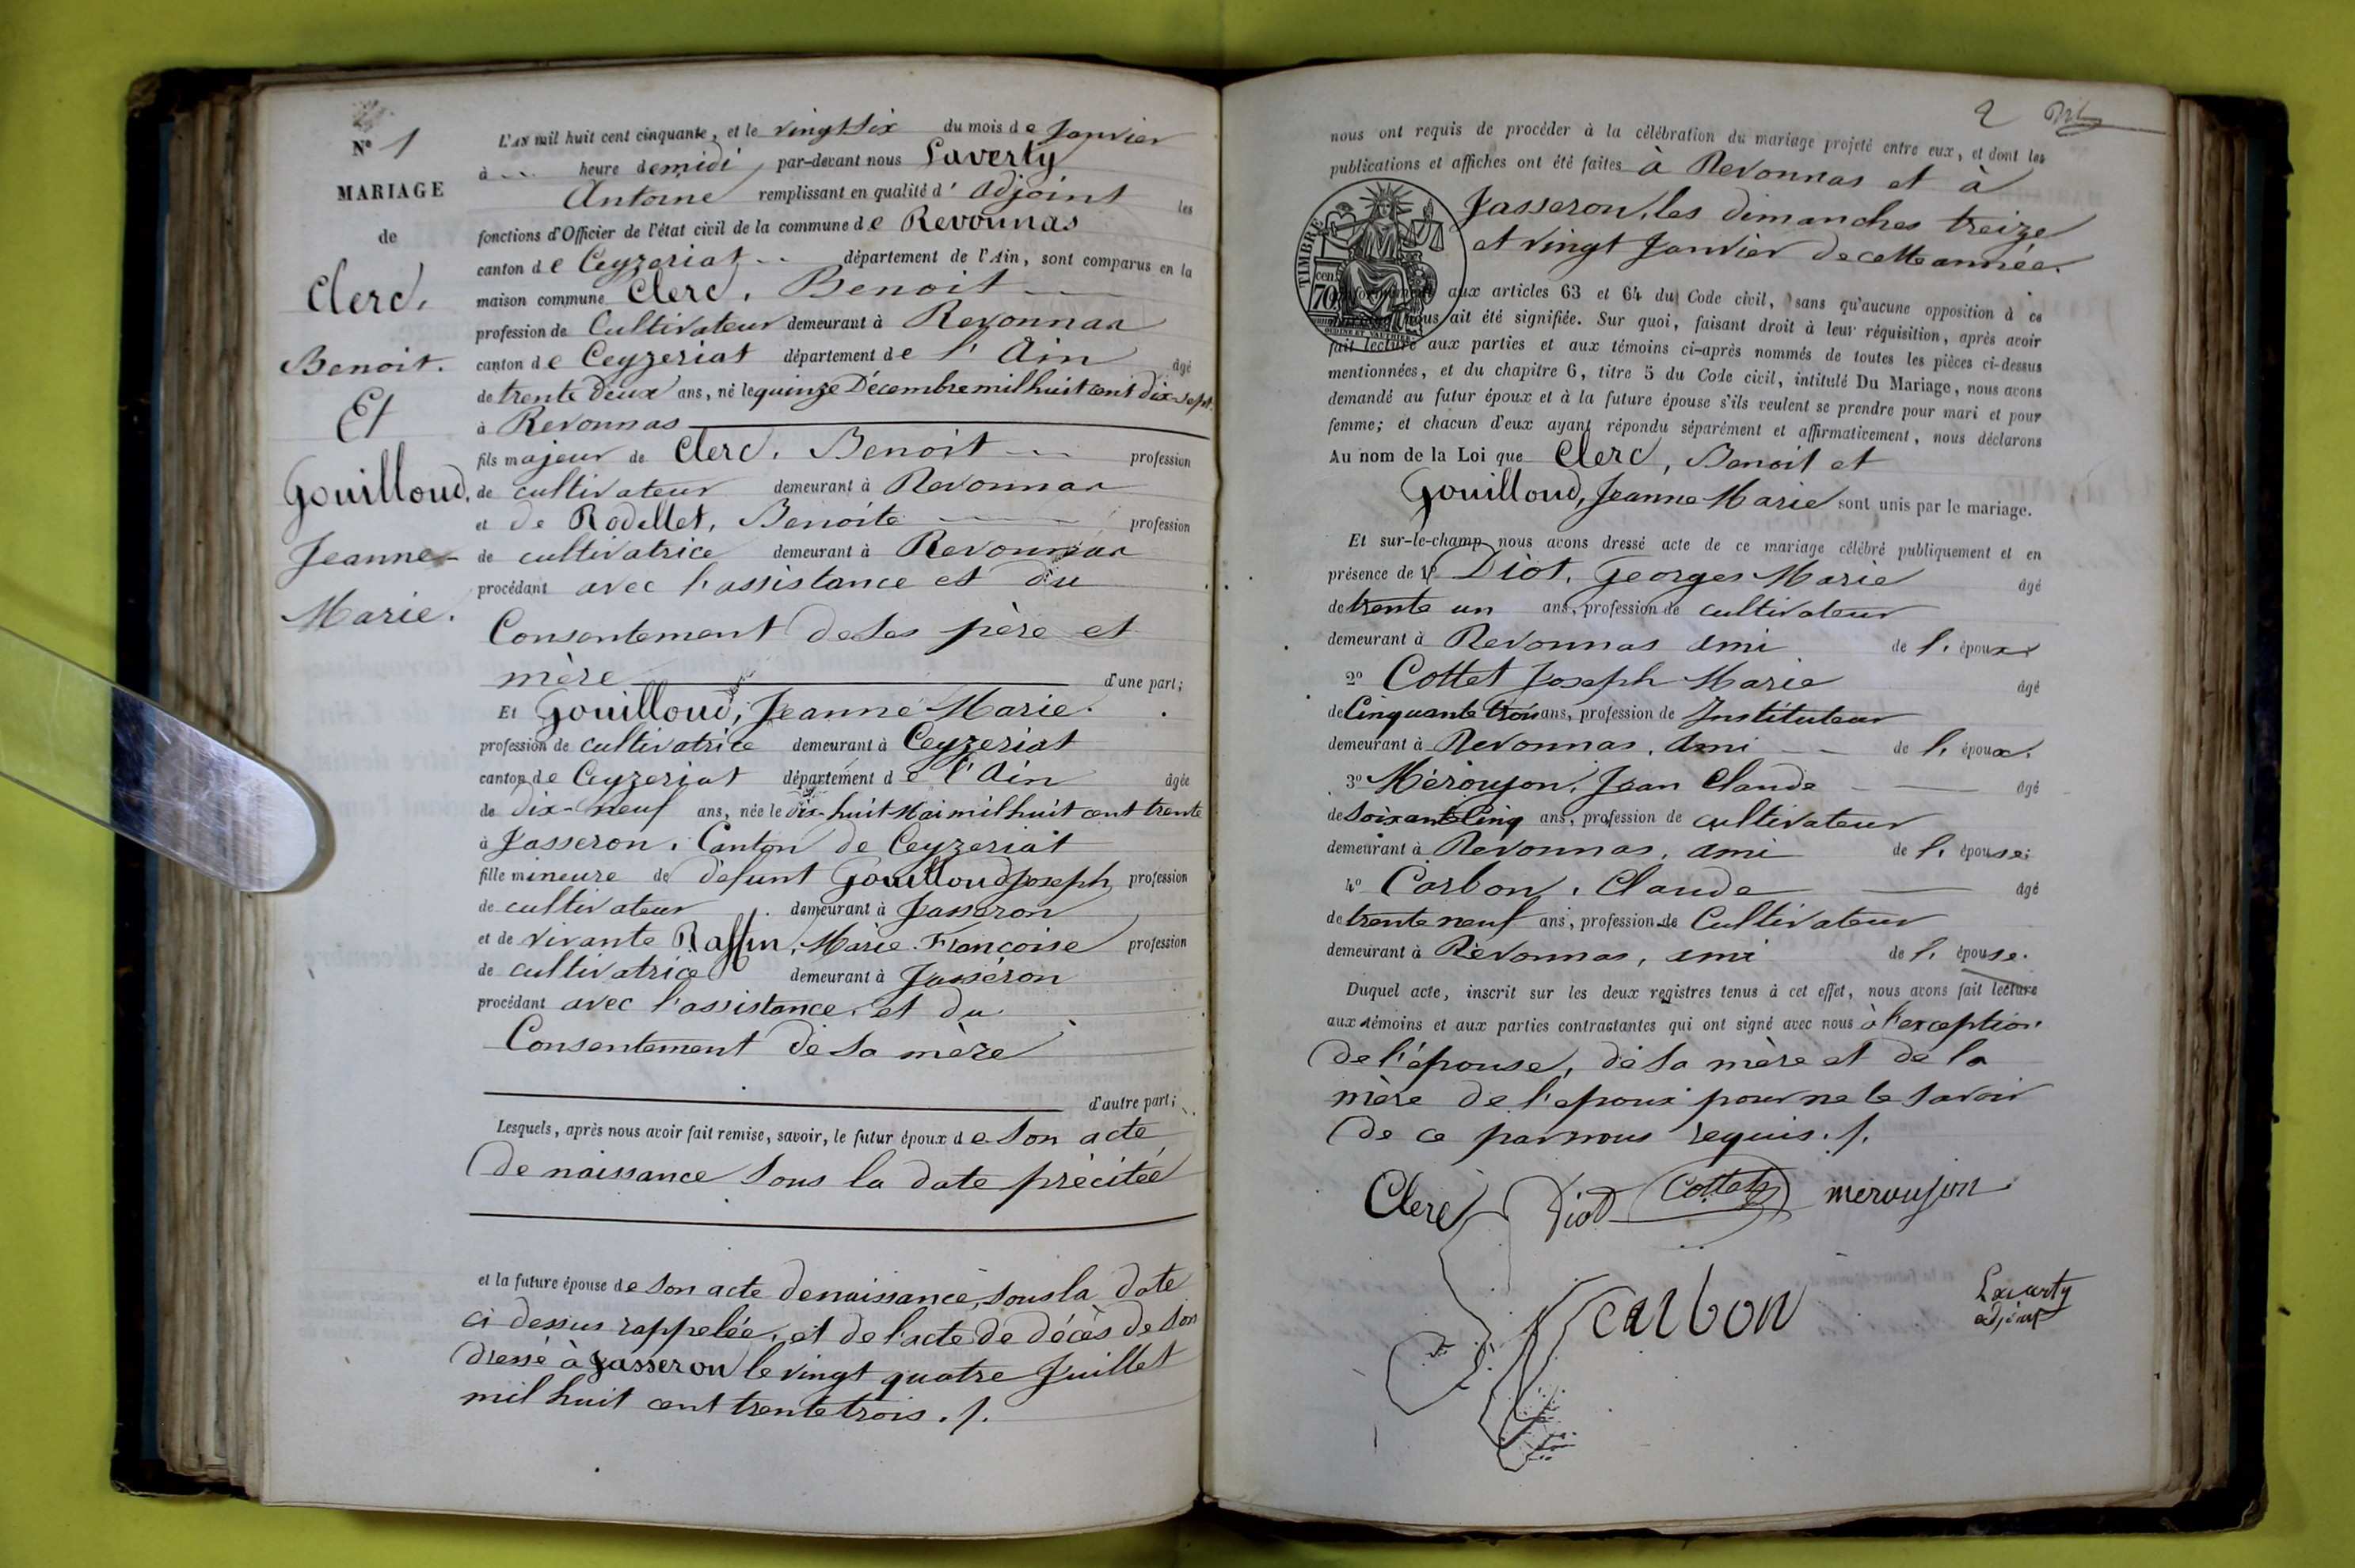 N° 1
MARIAGE
de
Clerc,
Benoit.
Et
Gouilloud,
Jeanne-
Marie.
L'AN mil huit cent cinquante, et le vingt Six du mois de Janvier
à -- heure de midi, par-devant nous Laverty
Antoine remplissant en qualité d' Adjoint les
fonctions d'Officier de l'état civil de la commune de Revonnas
canton de Ceyzeriat -- département de l'Ain, sont comparus en la
maison commune Clerc, Benoit
profession de Cultivateur demeurant à Revonnas
canton de Ceyzeriat département de l'Ain âgé
de trente deux ans, né le quinze Décembre mil huit cent dix-sept
à Revonnas
fils majeur de Clerc, Benoit -- profession
de cultivateur demeurant à Revonnas
et de Rodillet, Benoite profession
de cultivatrice demeurant à Revonnas
procédant avec l'assistance et du
Consentement de ses père et
mère d'une part;
Et Gouilloud, Jeanne Marie.
profession de cultivatrice demeurant à Ceyzeriat
canton de Ceyzeriat département de l'Ain âgée
de dix-neuf ans, née le dix-huit Mai mil huit cent trente
à Jasseron, Canton de Ceyzeriat
fille mineure de défunt Gouilloud Joseph, profession
de cultivateur demeurant à Jasseron
et de vivante Raffin, Marie Françoise profession
de cultivatrice demeurant à Jasseron
procédant avec l'assistance, et du
Consentement de sa mère
d'autre part;
Lesquels, après nous avoir fait remise, savoir, le futur époux de son acte
de naissance sous la date précitée
et la future épouse de son acte de naissance, sous la date
ci dessus rappelée, et de l'acte de décès de son
dressé à Jasseron le vingt quatre Juillet
mil huit cent trente trois ./.
2
nous ont requis de procéder à la célébration du mariage projeté entre eux, et dont les
publications et affiches ont été faites à Revonnas et à
Jasseron, les dimanches treize
et vingt Janvier de cette année.
TIMBRE
cen.
70
aux articles 63 et 64 du Code civil, sans qu'aucune opposition à ce
nous ait été signifiée. Sur quoi, faisant droit à leur réquisition, après avoir
fait lecture aux parties et aux témoins ci-après nommés de toutes les pièces ci-dessus
mentionnées, et du chapitre 6, titre 5 du Code civil, intitulé Du Mariage, nous avons
demandé au futur époux et à la future épouse s'ils veulent se prendre pour mari et pour
femme; et chacun d'eux ayant répondu séparément et affirmativement, nous déclarons
Au nom de la Loi que Clerc, Benoit et
Gouilloud, Jeanne Marie sont unis par le mariage.
Et sur-le-champ nous avons dressé acte de ce mariage célébré publiquement et en
présence de 1° Diot, Georges Marie âgé
de trente un ans, profession de cultivateur
demeurant à Revonnas ami de l'époux
2° Cottet Joseph Marie âgé
de Cinquante trois ans, profession de Instituteur
demeurant à Revonnas, ami -- de l'époux.
3° Méroujon, Jean Claude âgé
de Soixante Cinq ans, profession de cultivateur
demeurant à Revonnas, ami de l'épouse;
4° Carbon, Claude âgé
de trente neuf ans, profession de Cultivateur
demeurant à Revonnas, ami de l'épouse.
Duquel acte, inscrit sur les deux registres tenus à cet effet, nous avons fait lecture
aux témoins et aux parties contractantes qui ont signé avec nous à l'exception
de l'épouse, de sa mère et de la
mère de l'époux pour ne le savoir
de ce par nous requis ./.
Clerc Diot Cottet meroujon
carbon
Laverty
adjoint